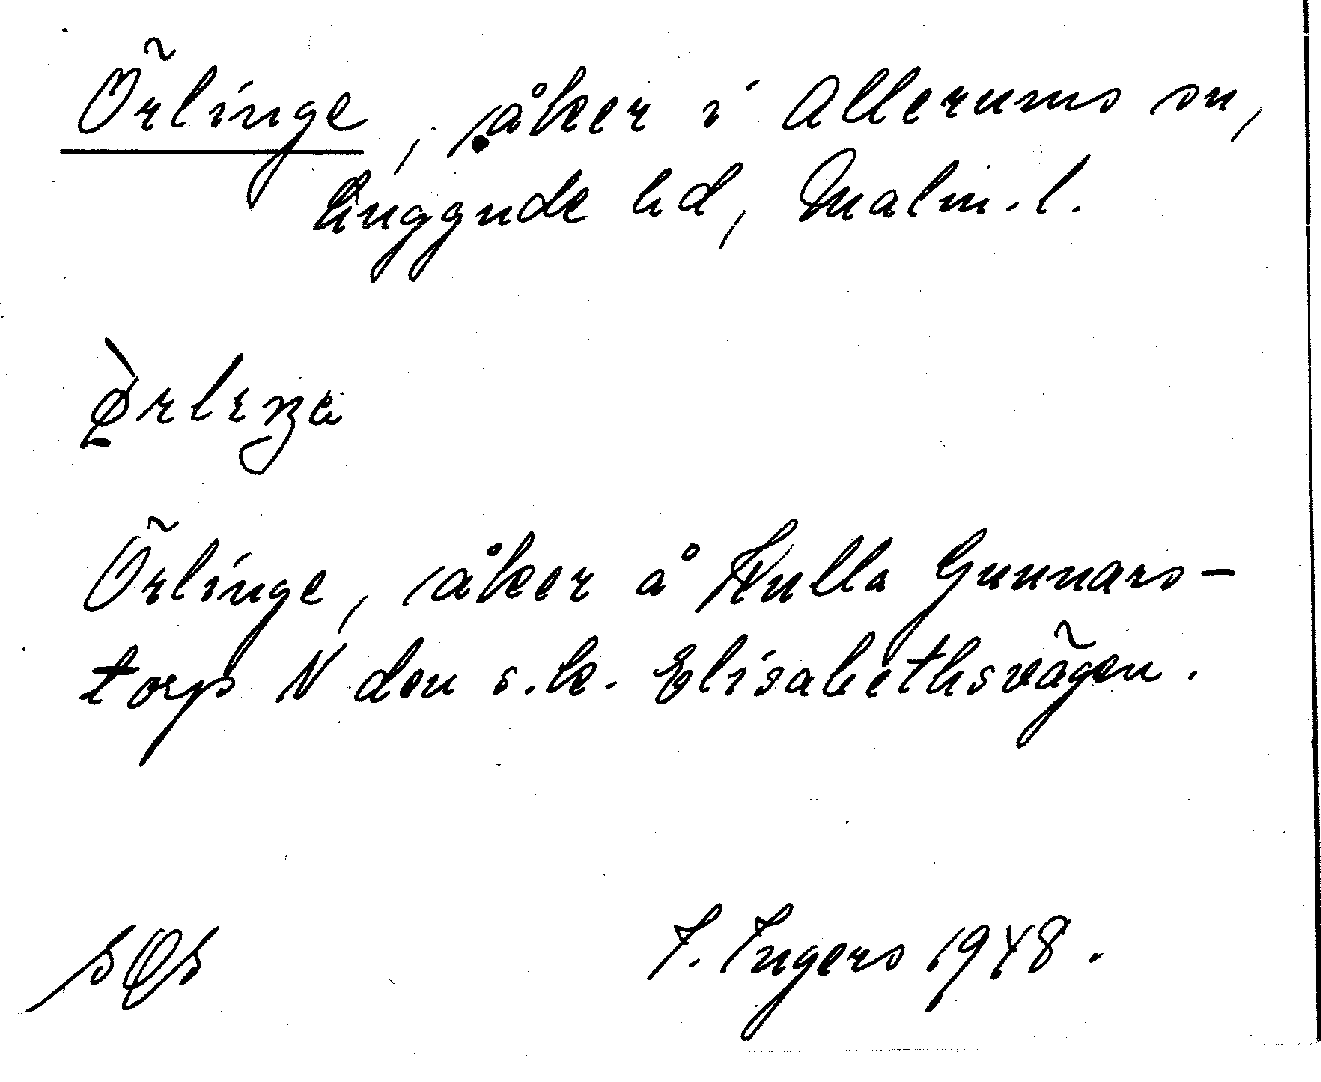 Örlinge, åker i Allerums sn,
Luggude hd, Malm. l.
Örlinge, åker å Kulla Gunnars-
torp N den s.k. Elisabethsvägen.
I. Ingers 1948.